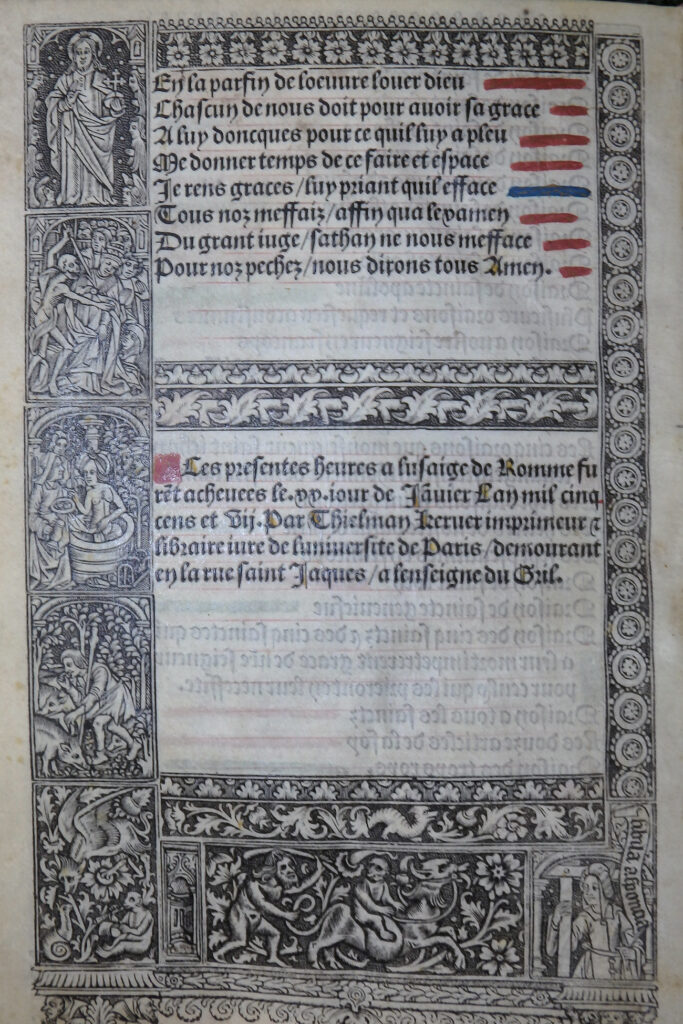 En la parfin de loeuure louer dieu
Chascun de nous doit pour auoir sa grace
A luy doncques pour ce quil luy a pleu
Me donner temps de ce faire et espace
Je rens graces/luy priant quil efface
Tous noz meffaiz/affin qua lexamen
Du grant iuge/sathan ne nous mefface
Pour noz pechez/nous dirons tous Amen.
Ces presentes heures a lusaige de Romme fu
rēt acheuees le.xx.iour de Jāuier Lan mil cinq
cens et vij. Par Thielman Keruer imprimeur ⁊
libraire iure de luniuersite de Paris/demourant
en la rue saint Jaques/a lenseigne du Gril.